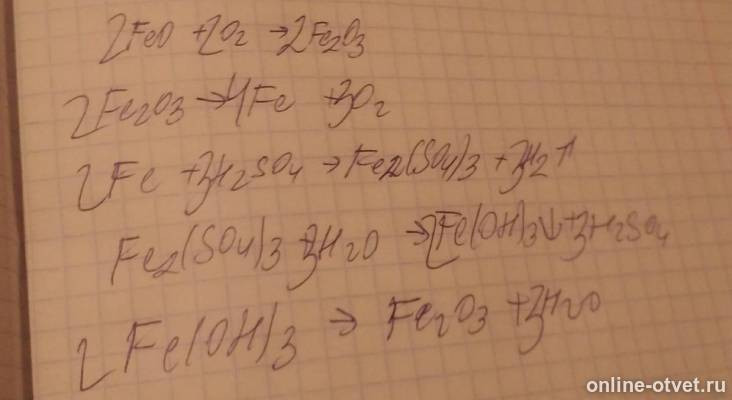 2FeO + 2O2 → 2Fe2O3
2Fe2O3 → 4Fe + 3O2
2Fe + 3H2SO4 → Fe2(SO4)3 + 3H2↑
Fe2(SO4)3 + 3H2O → 2Fe(OH)3↓ + 3H2SO4
2Fe(OH)3 → Fe2O3 + 3H2O
online-otvet.ru